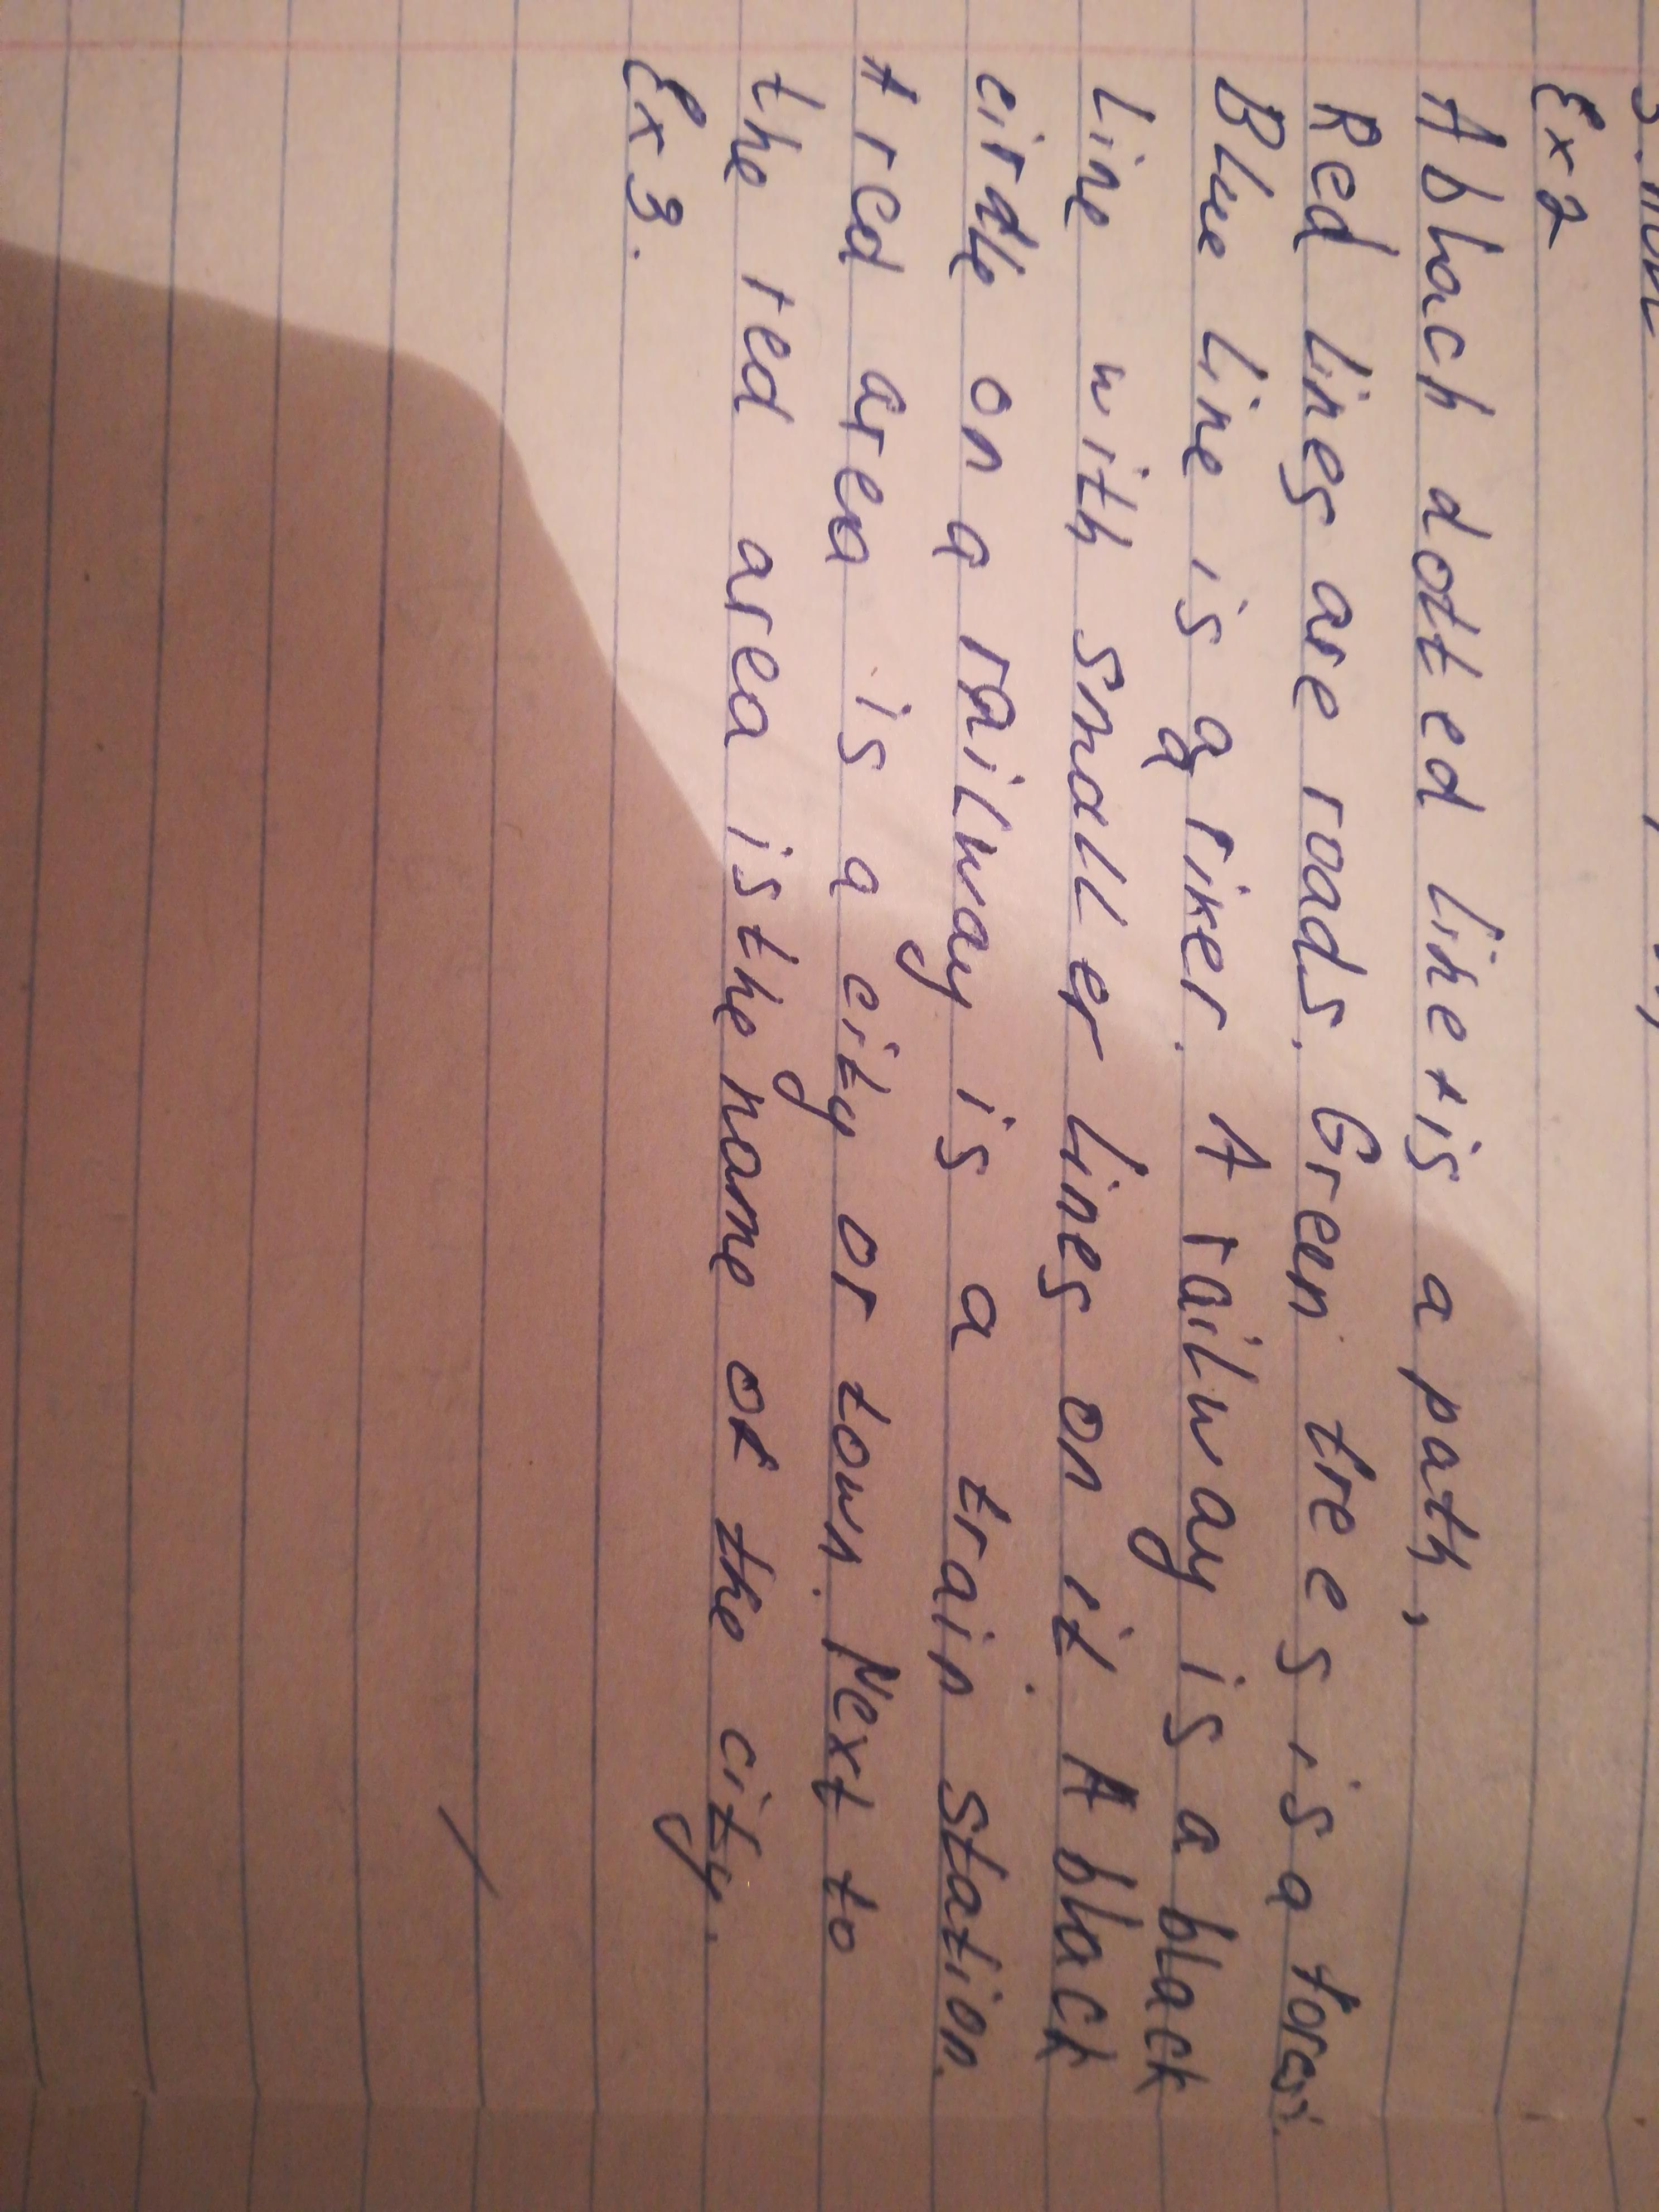 Ex 2
A black dotted line is a path,
Red lines are roads. Green trees is a forest.
Blue line is a river. A railway is a black
line with smaller lines on it. A black
circle on a railway is a train station.
A red area is a city or town. Next to
the red area is the name of the city.
Ex 3.